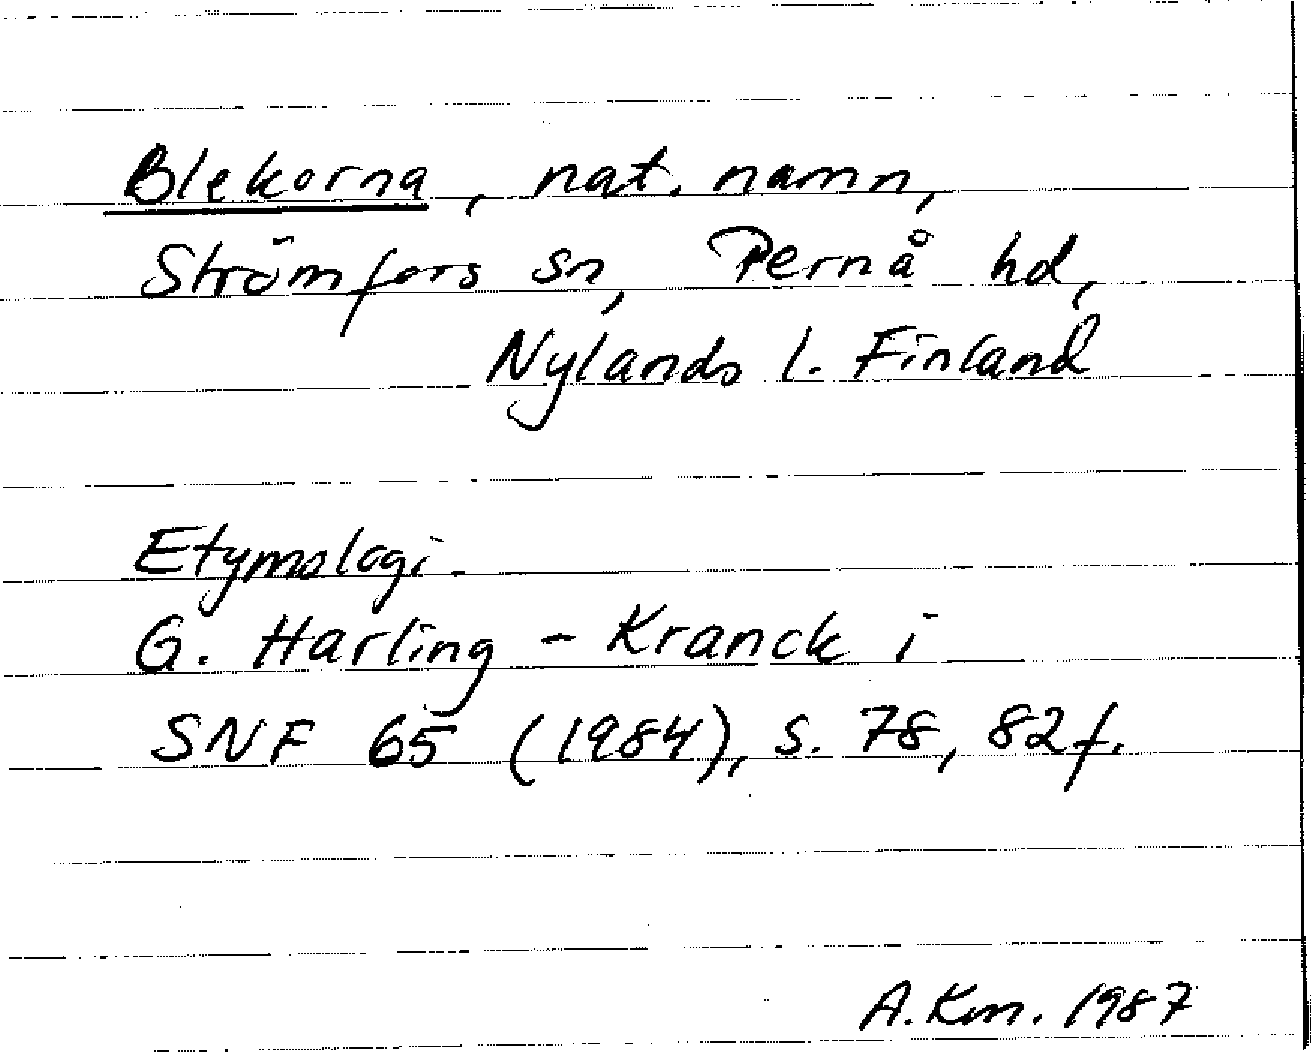 Blekorna, nat. namn,
Strömfors sn, Pernå hd,
Nylands l. Finland
Etymologi.
G. Harling-Kranck i
SNF 65 (1984), s. 78, 82f.
A.Km. 1987